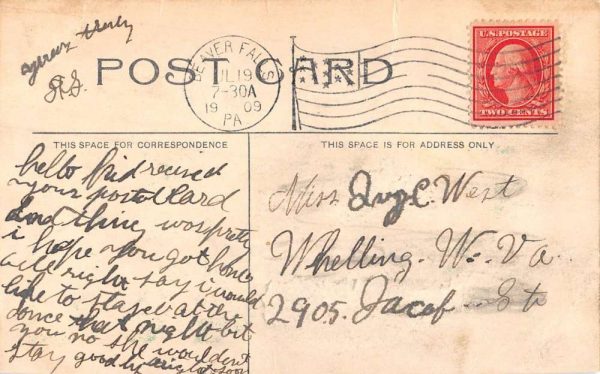 yours truly
R.S.
POST CARD
BEAVER FALLS
JUL 19
7-30A
1909
PA
U.S. POSTAGE
TWO CENTS
THIS SPACE FOR CORRESPONDENCE
hello kid recived
your postel Kard
and think was pretty
i hope you got home
all right say i would
like to stayed at the
dance that night but
you no she wouldent
stay goodby right soon
THIS SPACE IS FOR ADDRESS ONLY
Miss C. West
Whelling. W. Va.
2905. Jacob St